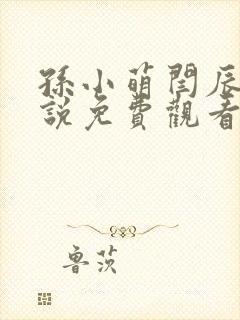 孫小萌閆辰
說免費觀看
魯茨